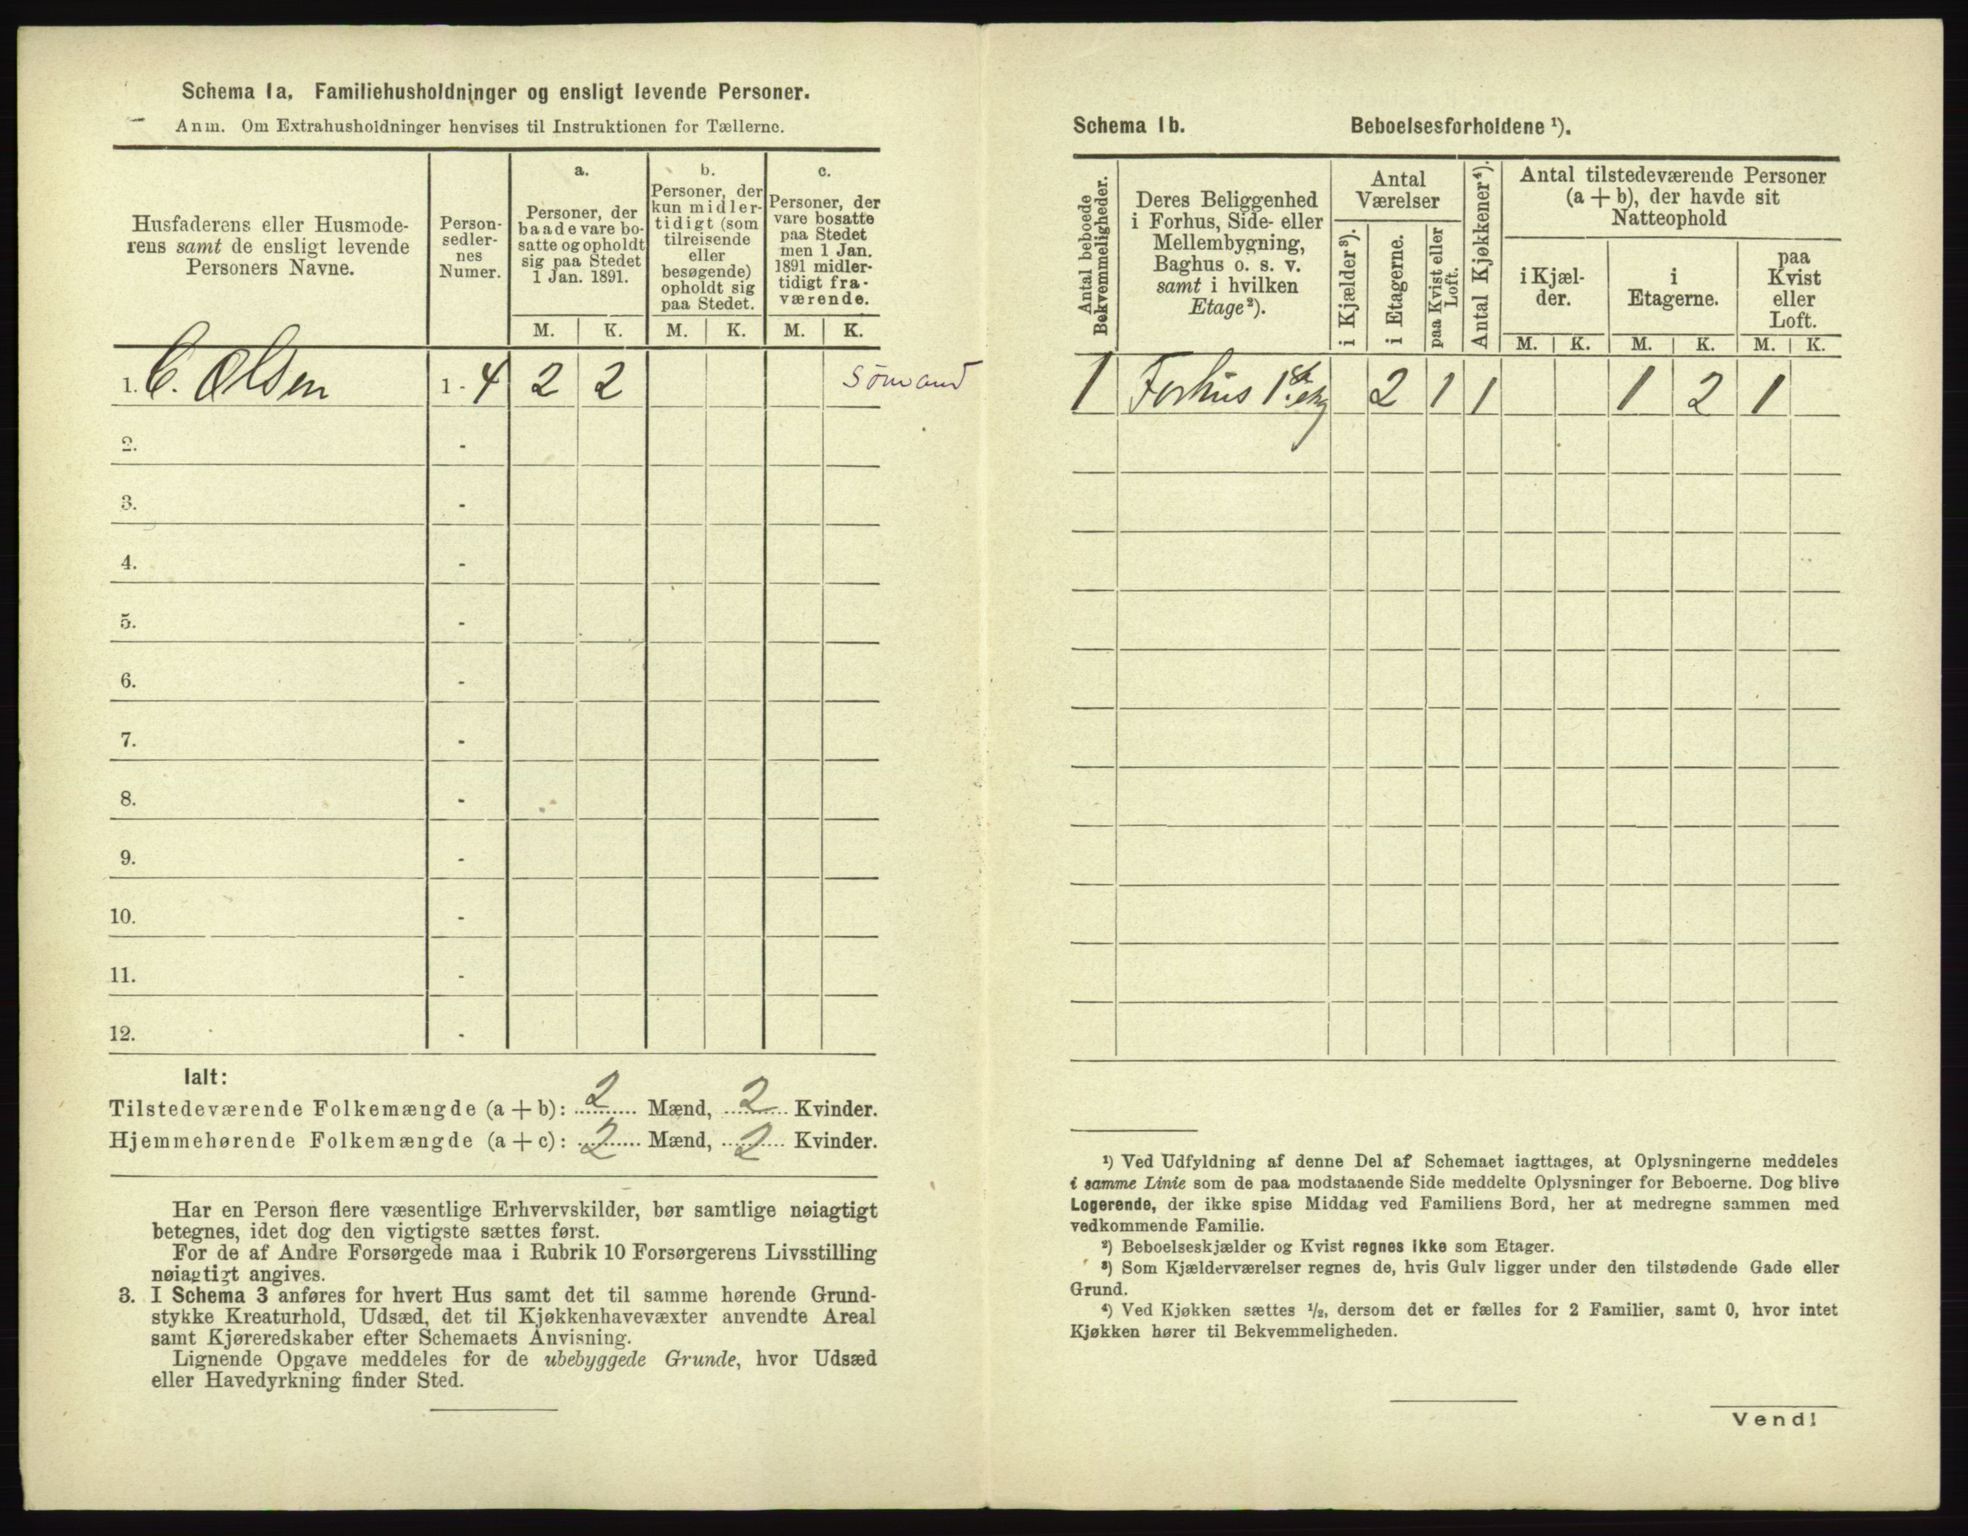 Schema 1a. Familiehusholdninger og ensligt levende Personer.
Anm. Om Extrahusholdninger henvises til Instruktionen for Tællerne.
Husfaderens eller Husmode-
rens samt de ensligt levende
Personers Navne.
Person-
sedler-
nes
Numer.
a.
Personer, der
baade vare bo-
satte og opholdt
sig paa Stedet
1 Jan. 1891.
b.
Personer, der
kun midler-
tidigt (som
tilreisende
eller
besøgende)
opholdt sig
paa Stedet.
c.
Personer, der
vare bosatte
paa Stedet
men 1 Jan.
1891 midler-
tidigt fra-
værende.
M. K. M. K. M. K.
1. C. Olsen 1 - 4 2 2 Sömand
2. -
3. -
4. -
5. -
6. -
7. -
8. -
9. -
10. -
11. -
12. -
Ialt:
Tilstedeværende Folkemængde (a + b): 2 Mænd, 2 Kvinder.
Hjemmehørende Folkemængde (a + c): 2 Mænd, 2 Kvinder.
Har en Person flere væsentlige Erhvervskilder, bør samtlige nøiagtigt
betegnes, idet dog den vigtigste sættes først.
For de af Andre Forsørgede maa i Rubrik 10 Forsørgerens Livsstilling
nøiagtigt angives.
3. I Schema 3 anføres for hvert Hus samt det til samme hørende Grund-
stykke Kreaturhold, Udsæd, det til Kjøkkenhavevæxter anvendte Areal
samt Kjøreredskaber efter Schemaets Anvisning.
Lignende Opgave meddeles for de ubebyggede Grunde, hvor Udsæd
eller Havedyrkning finder Sted.
Schema 1b. Beboelsesforholdene ¹).
Antal beboede
Bekvemmeligheder.
Deres Beliggenhed
i Forhus, Side- eller
Mellembygning,
Baghus o. s. v.
samt i hvilken
Etage²).
Antal
Værelser
i Kjælder³).
i Etagerne.
paa Kvist eller
Loft.
Antal Kjøkkener⁴).
Antal tilstedeværende Personer
(a + b), der havde sit
Natteophold
i Kjæl-
der.
i
Etagerne.
paa
Kvist
eller
Loft.
M. K. M. K. M. K.
1 Forhus 1ste etg 2 1 1 1 2 1
¹) Ved Udfyldning af denne Del af Schemaet iagttages, at Oplysningerne meddeles
i samme Linie som de paa modstaaende Side meddelte Oplysninger for Beboerne. Dog blive
Logerende, der ikke spise Middag ved Familiens Bord, her at medregne sammen med
vedkommende Familie.
²) Beboelseskjælder og Kvist regnes ikke som Etager.
³) Som Kjælderværelser regnes de, hvis Gulv ligger under den tilstødende Gade eller
Grund.
⁴) Ved Kjøkken sættes ½, dersom det er fælles for 2 Familier, samt 0, hvor intet
Kjøkken hører til Bekvemmeligheden.
Vend!